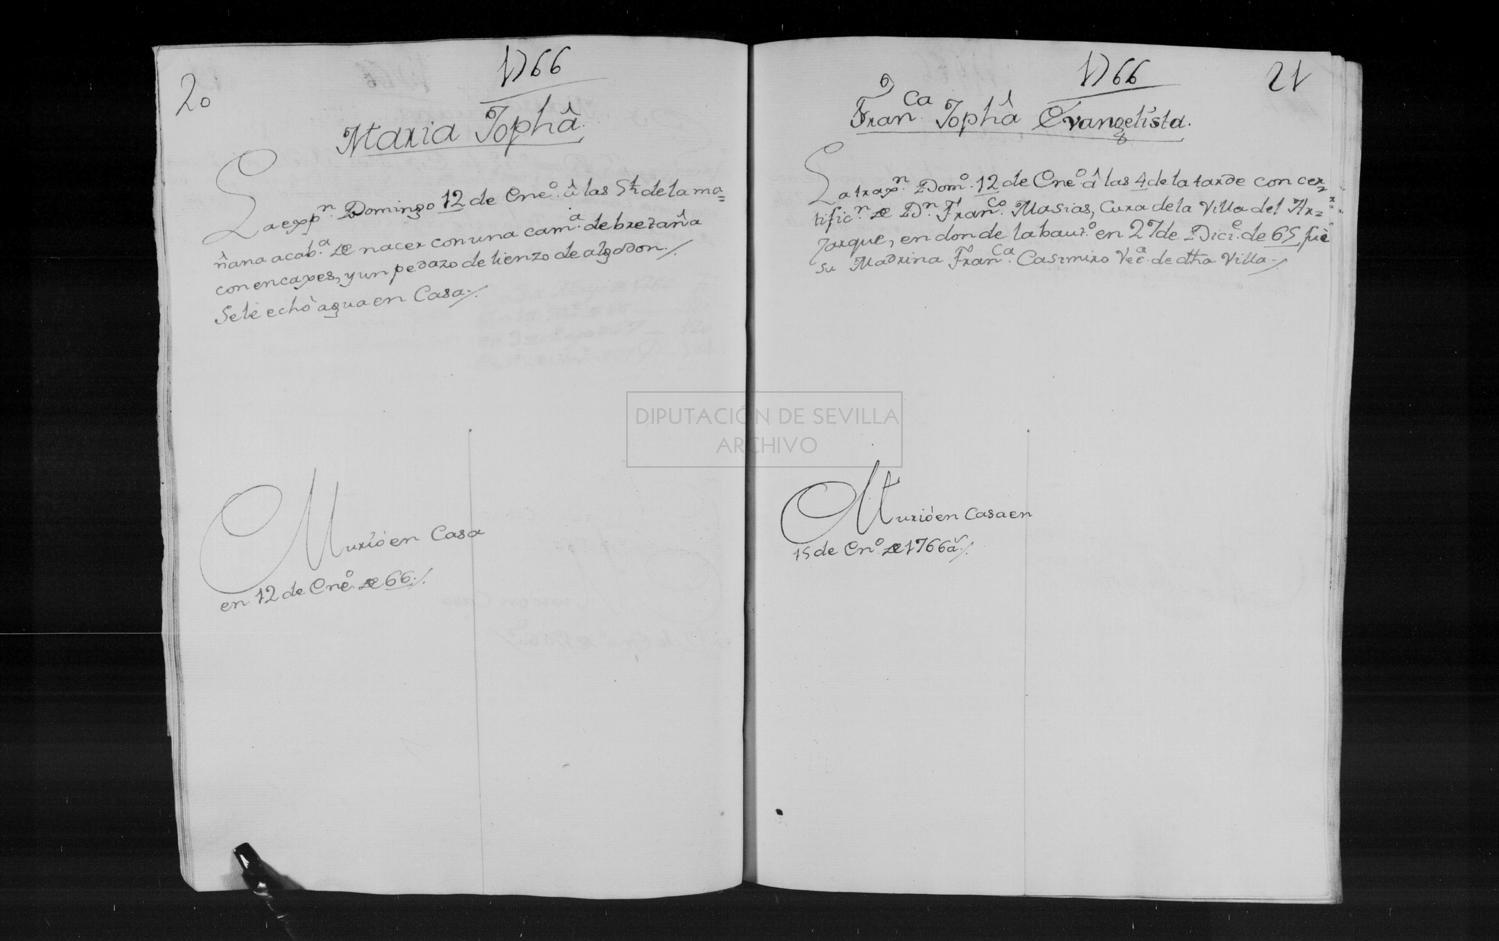 20
1766
Maria Jophâ.
La expp.n Domingo 12 de Ene.o â las 5 1/2 de la ma=
ñana acab.a de nacer con una cam.a de bretaña
con encaxes, y un pedazo de lienzo de algodon./
Se le echò agua en Casa./
Murió en Casa
en 12 de Ene.o de 66./
1766
21
Fran.ca Jophâ Evangelista.
La traxe.n Dom.o 12 de Ene.o â las 4 de la tarde con cer=
tific.n de D.n Fran.co Masias, Cura de la Villa del Ar=
, en donde la baut.o en 27 de Dici.e de 65, fuè
su Madrina Fran.ca Casimiro Vec.a de dha Villa./
DIPUTACIÓN DE SEVILLA
ARCHIVO
Murió en Casa en
15 de En.o de 1766 a.s/